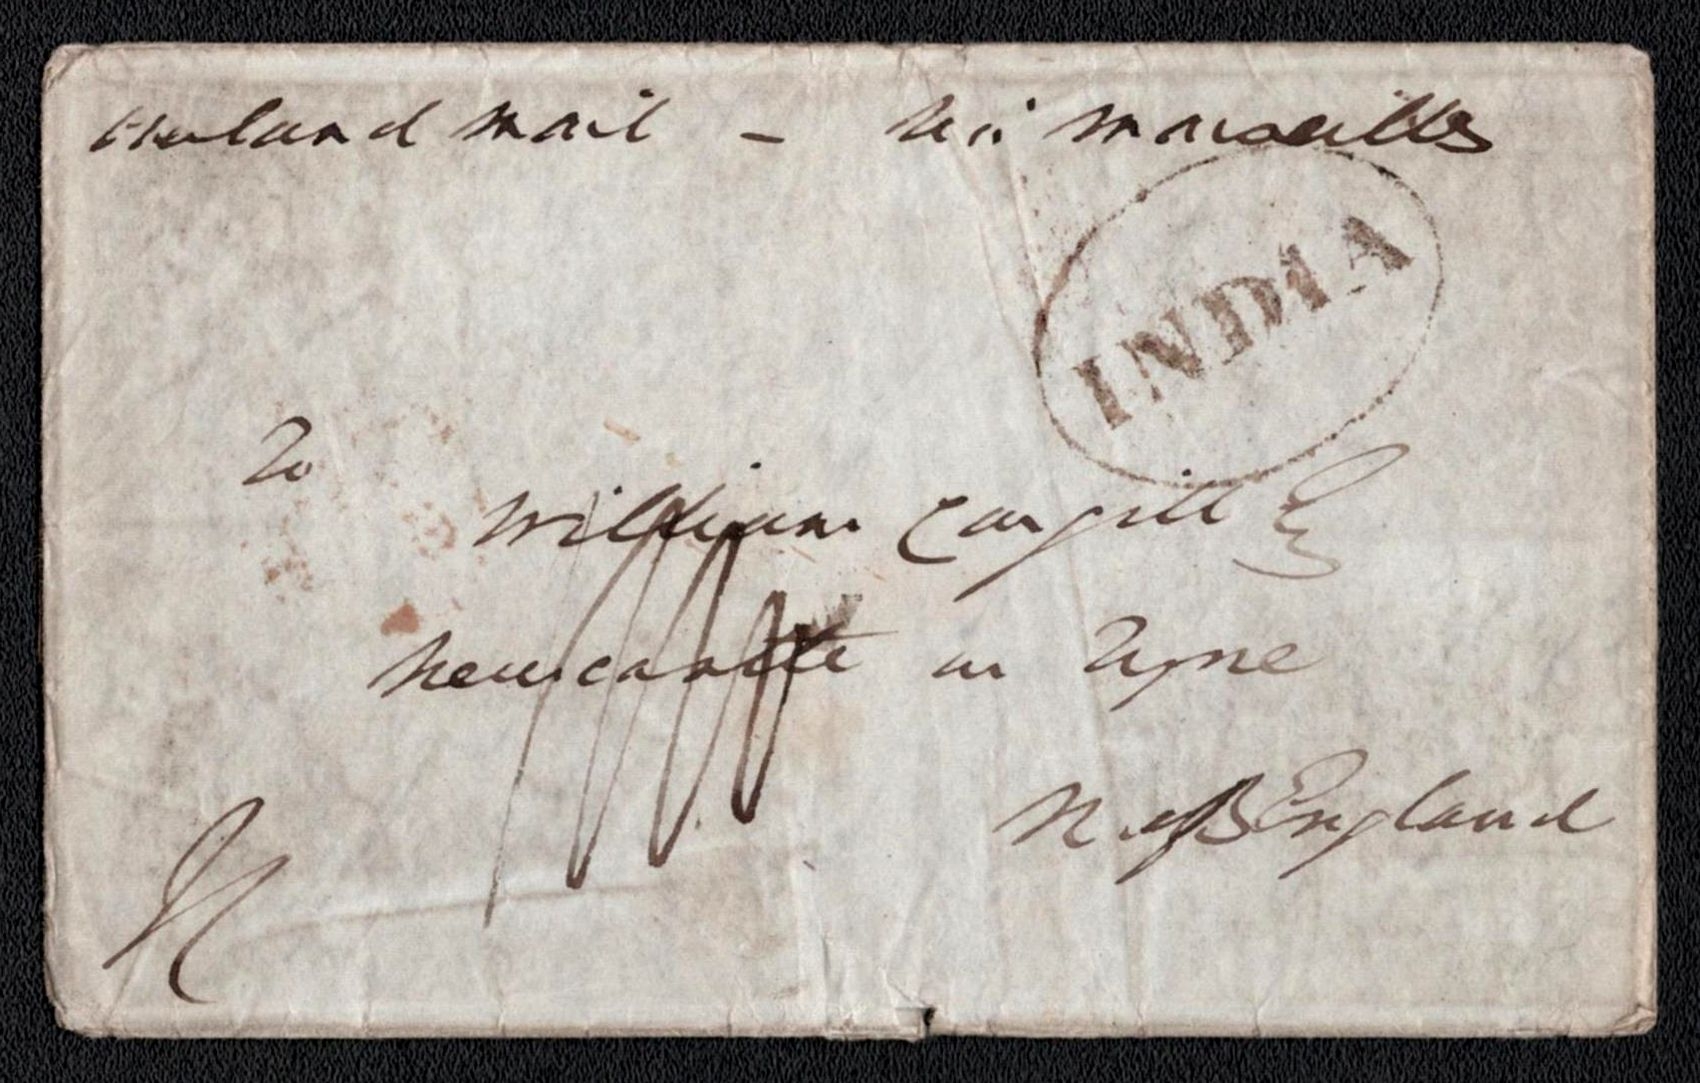 Overland Mail – Via Marseilles
INDIA
To
William Cargill Esq
Newcastle on Tyne
N. England